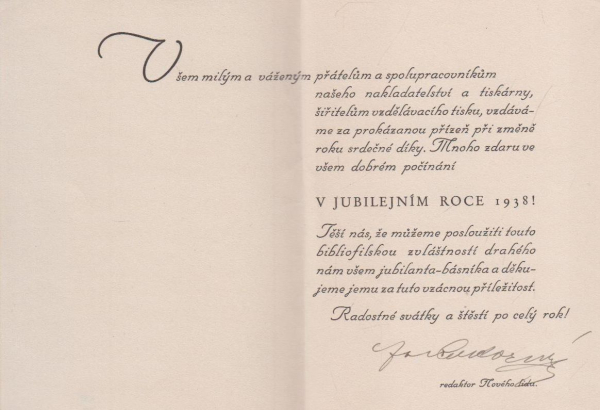 Všem milým a váženým přátelům a spolupracovníkům
našeho nakladatelství a tiskárny,
šiřitelům vzdělávacího tisku, vzdává-
me za prokázanou přízeň při změně
roku srdečné díky. Mnoho zdaru ve
všem dobrém počínání
V JUBILEJNÍM ROCE 1938!
Těší nás, že můžeme posloužiti touto
bibliofilskou zvláštností drahého
nám všem jubilanta-básníka a děku-
jeme jemu za tuto vzácnou příležitost.
Radostné svátky a štěstí po celý rok!
redaktor Nového lidu.